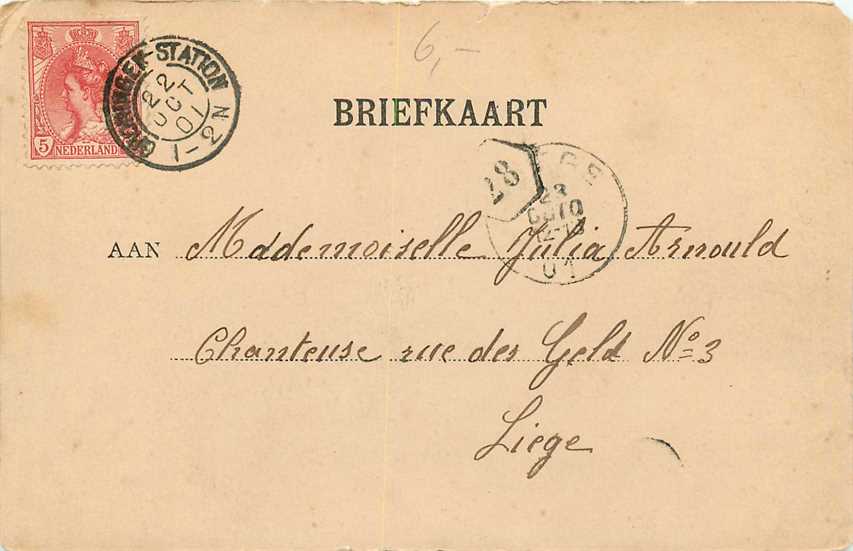 6,-
5 NEDERLAND
GRONINGEN-STATION
22
OCT
01
1-2N
BRIEFKAART
28
23
OCTO
01
AAN Mademoiselle Julia Arnould
Chanteuse rue des Geld No 3
Liege